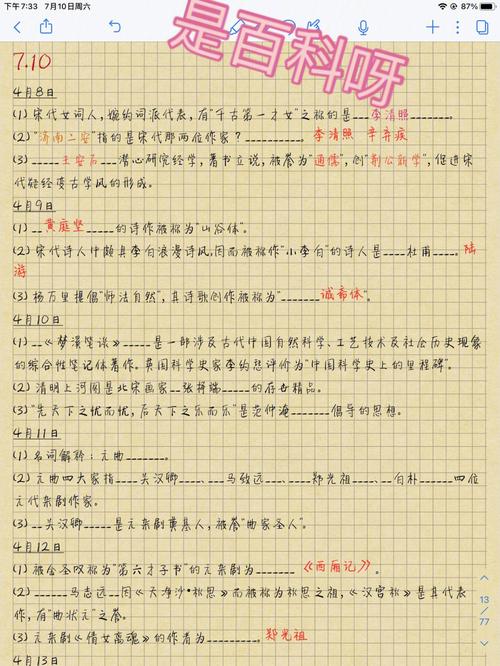 下午7:33 7月10日周六
87%
是百科呀
7.10
4月8日
(1) 宋代女词人,婉约词派代表,有"千古第一才女"之称的是___李清照______。
(2)"济南二安"指的是宋代那两位作家?_________. 李清照 辛弃疾
(3)_____王安石___潜心研究经学,著书立说,被誉为"通儒",创"荆公新学",促进宋
代疑经变古学风的形成。
4月9日
(1) _黄庭坚_____的诗作被称为"山谷体"。
(2) 宋代诗人中颇具李白浪漫诗风,因而被称作"小李白"的诗人是____杜甫____。陆
游
(3) 杨万里提倡"师法自然",其诗歌创作被称为"_______诚斋体"。
4月10日
(1)__《梦溪笔谈》_____是一部涉及古代中国自然科学、工艺技术及社会历史现象
的综合性笔记体著作。英国科学史家李约瑟评价为"中国科学史上的里程碑"。
(2) 清明上河图是北宋画家__张择端_____的存世精品。
(3)"先天下之忧而忧,后天下之乐而乐"是范仲淹_______倡导的思想。
4月11日
(1) 名词解释:元曲_______。
(2) 元曲四大家指____关汉卿____、____马致远____、____郑光祖____、__白朴_____四位
元代杂剧作家。
(3)__关汉卿_____是元杂剧奠基人,被誉"曲家圣人"。
4月12日
(1) 被金圣叹称为"第六才子书"的元杂剧为_______ 《西厢记》。
(2)______马志远__因《天净沙·秋思》而被称为秋思之祖,《汉宫秋》是其代表
作,有"曲状元"之誉。
(3) 元杂剧《倩女离魂》的作者为_________.郑光祖
4月13日
13
77